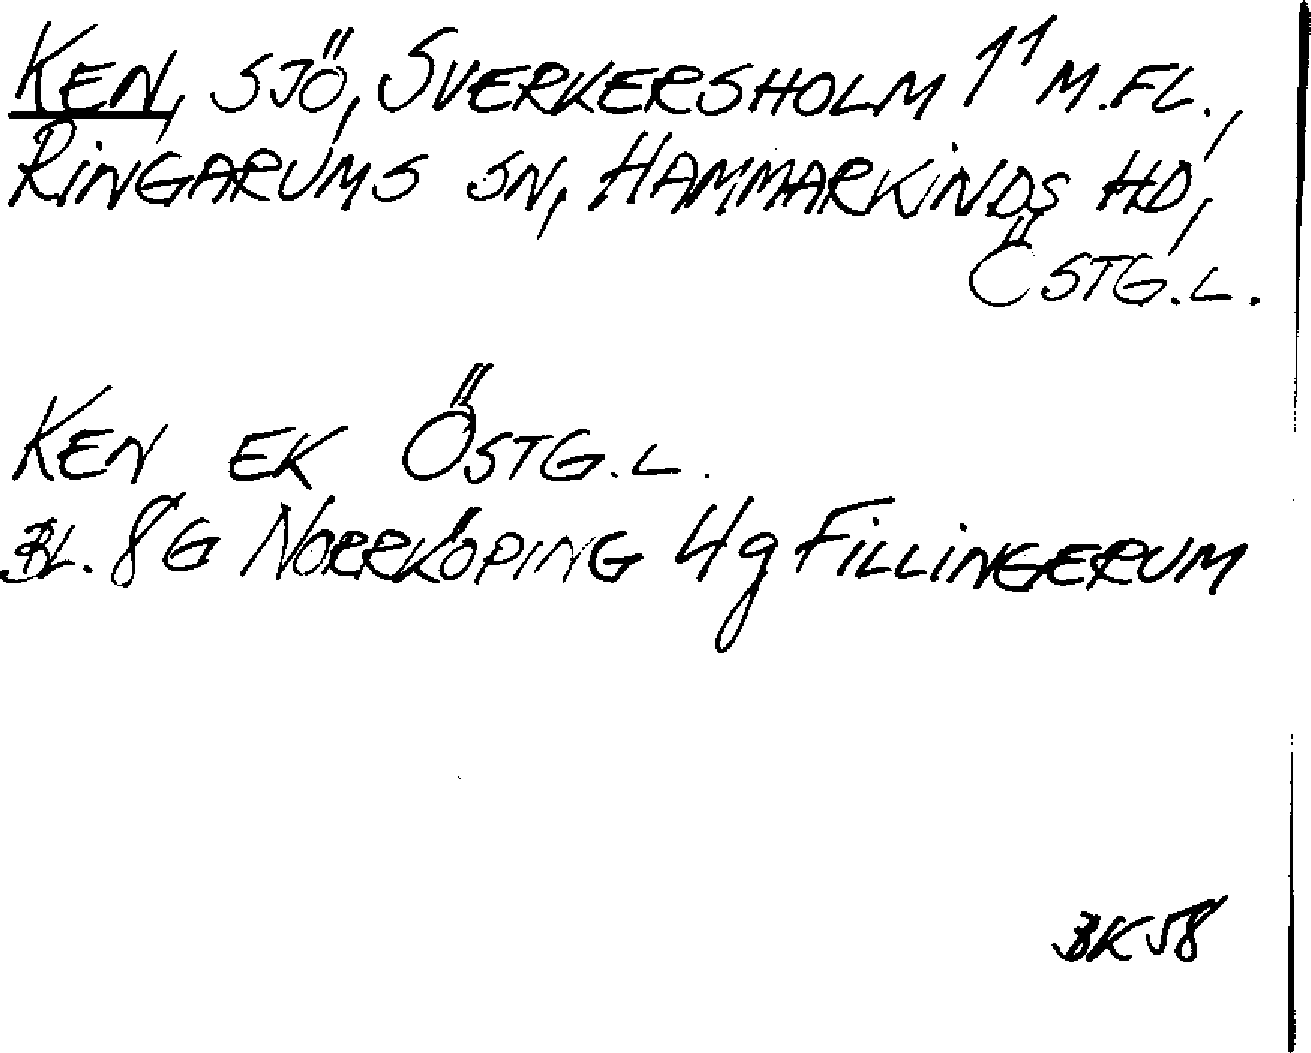 KEN, SJÖ, SVERKERSHOLM 1¹ M.FL.,
RINGARUMS SN, HAMMARKINDS HD,
ÖSTG.L.
KEN EK ÖSTG.L.
BL. 8G NORRKÖPING 4g FILLINGERUM
BK58